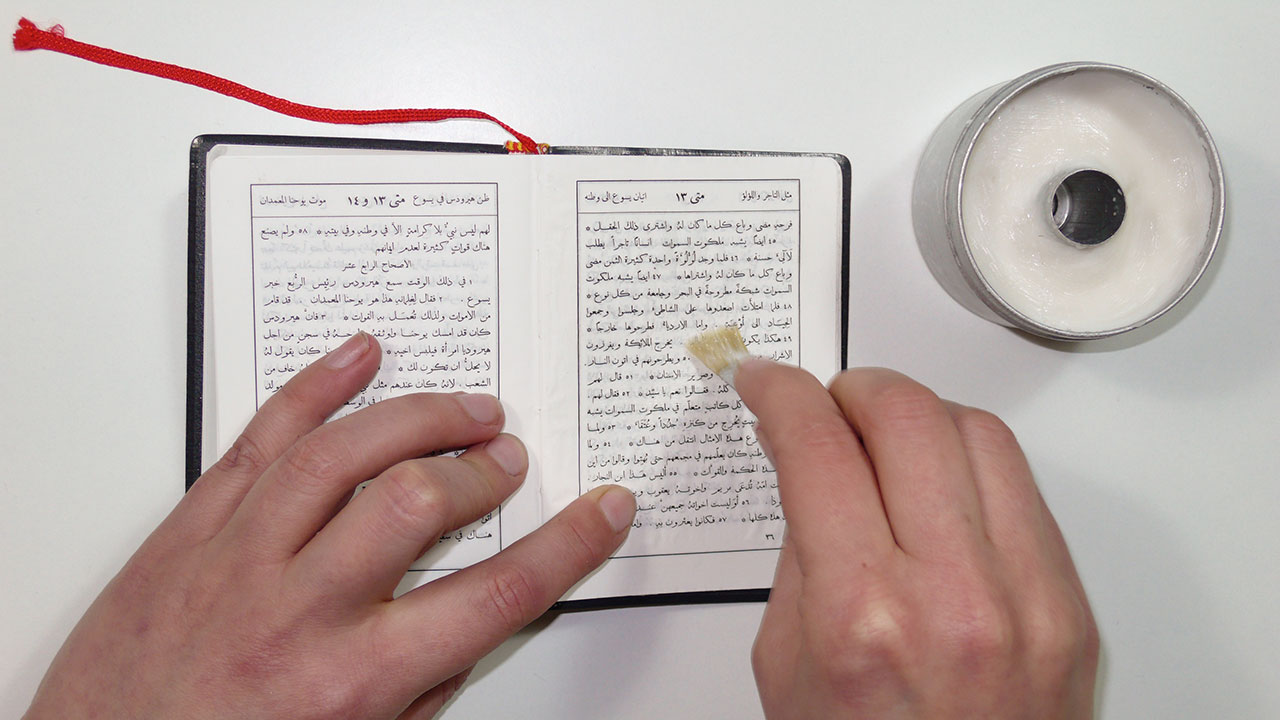 مثل التاجر واللؤلؤ متى ١٣ اتيان يسوع الى وطنه
فرحهِ مضى وباع كل ما كان لهُ واشترى ذلك الحقل *
٤٥ ايضًا يشبه ملكوت السموات انسانًا تاجرًا يطلب
لآلئَ حسنة * ٤٦ فلما وجد لؤلؤةً واحدة كثيرة الثمن مضى
وباع كل ما كان لهُ واشتراها * ٤٧ ايضًا يشبه ملكوت
السموات شبكةً مطروحةً في البحر وجامعة من كل نوع *
٤٨ فلما امتلأت اصعدوها على الشاطئ وجلسوا وجمعوا
الجياد الى اوعية واما الاردياء فطرحوها خارجًا *
٤٩ هكذا يكون يخرج الملائكة ويفرزون
الاشرار
ويطرحونهم في اتون النار
وصرير الاسنان * ٥١ قال لهم
كلهُ فقالوا نعم يا سيّد * ٥٢ فقال لهم
كل كاتب متعلّم في ملكوت السموات يشبه
يُخرج من كنزهِ جُدُدًا وعُتَقًا * ٥٣ ولما
هذه الامثال انتقل من هناك * ٥٤ ولما
وطنهِ كان يعلّمهم في مجمعهم حتى بُهتوا وقالوا من اين
هذه الحكمة والقوات * ٥٥ أليس هذا ابن النجار
امّهُ تُدعَى مريم واخوتهُ يعقوب
٥٦ أوَليست اخواتهُ جميعهنَّ عندنا
هذه كلها * ٥٧ فكانوا يعثرون بهِ
٣٦
ظن هيرودس في يسوع متى ١٣ و ١٤ موت يوحنا المعمدان
لهم ليس نبيٌّ بلا كرامةٍ الاَّ في وطنهِ وفي بيتهِ * ٥٨ ولم يصنع
هناك قواتٍ كثيرة لعدم ايمانهم
الاصحاح الرابع عشر
١ في ذلك الوقت سمع هيرودس رئيس الرُّبع خبر
يسوع ٢ فقال لغلمانهِ هذا هو يوحنا المعمدان قد قام
من الاموات ولذلك تُعمَل بهِ القوات * ٣ فان هيرودس
كان قد امسك يوحنا واوثقهُ وطرحهُ في سجن من اجل
هيروديا امرأة فيلبس اخيهِ * كان يقول لهُ
لا يحلُّ ان تكون لك * خاف من
الشعب لانهُ كان عندهم مثل
في الوسط
هناك في